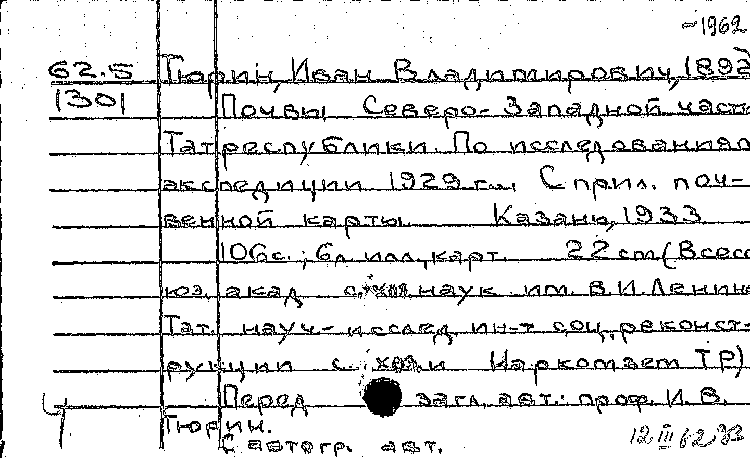 -1962
62.5 Тюрин, Иван Владимирович, 1892
1301 Почвы Северо-Западной част
Татреспублики. По исследованиям
экспедиции 1929 г. С прил. поч-
венной карты. Казань, 1933
106с.; 6л. илл., карт. 22 cm (Всесо
юз. акад с.-хоз. наук им. В.И. Ленин
Тат. науч-исслед. ин-т соц. реконст-
рукции с. хоз. и Наркомзем ТР)
Перед загл. авт.: проф. И. В.
Тюрин.
С автогр. авт.
12 III 62